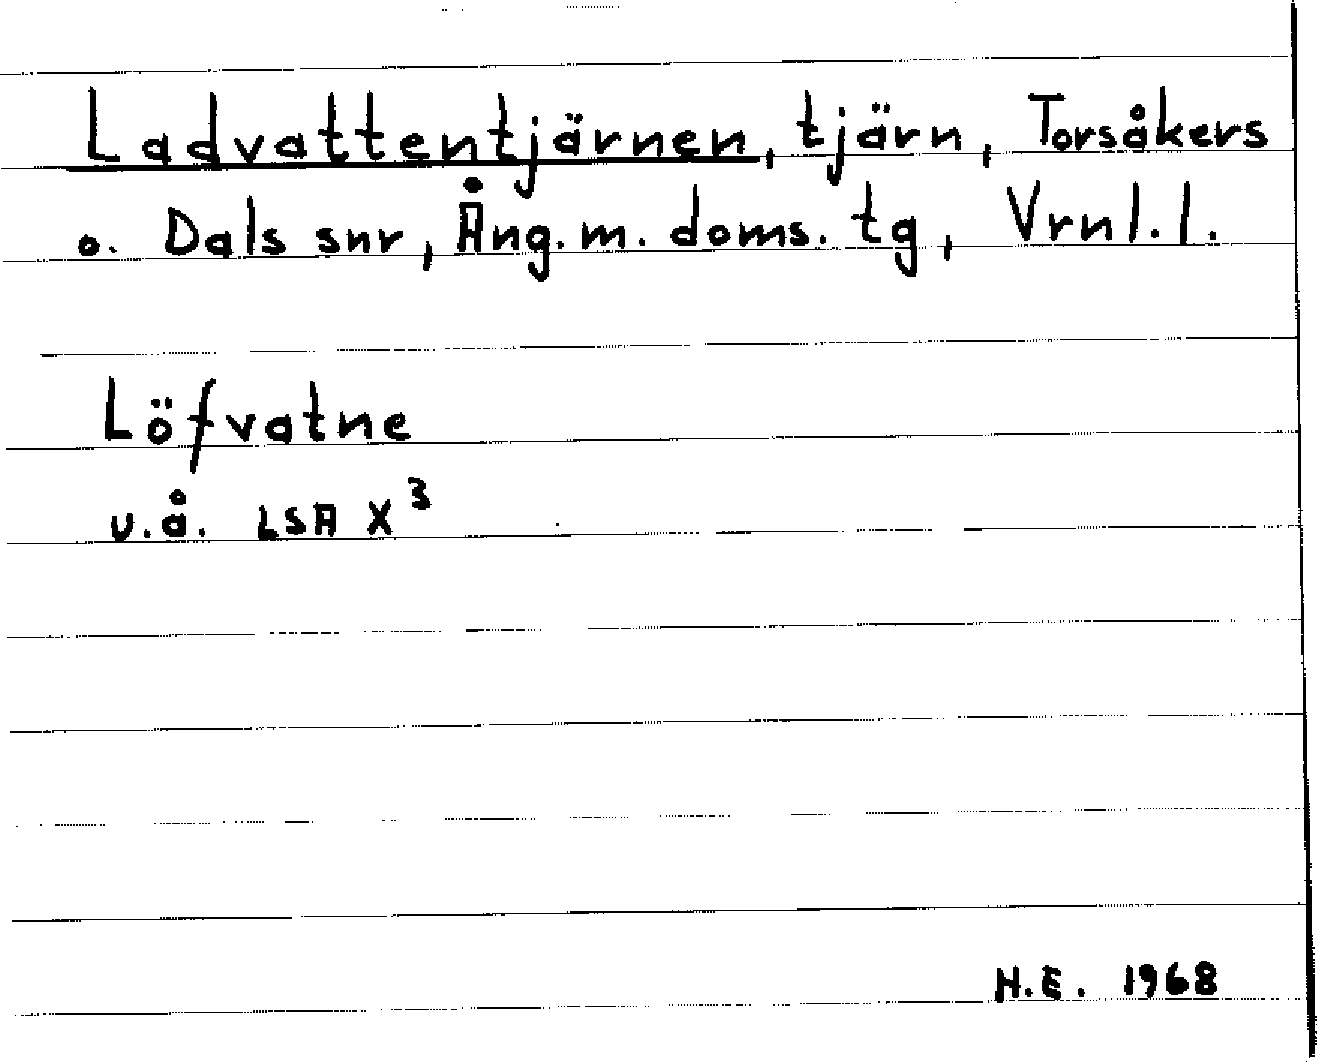 Ladvattentjärnen, tjärn, Torsåkers
o. Dals snr, Ång.m. doms. tg, Vrnl.l.
Löfvatne
u.å. LSA X³
H.E. 1968